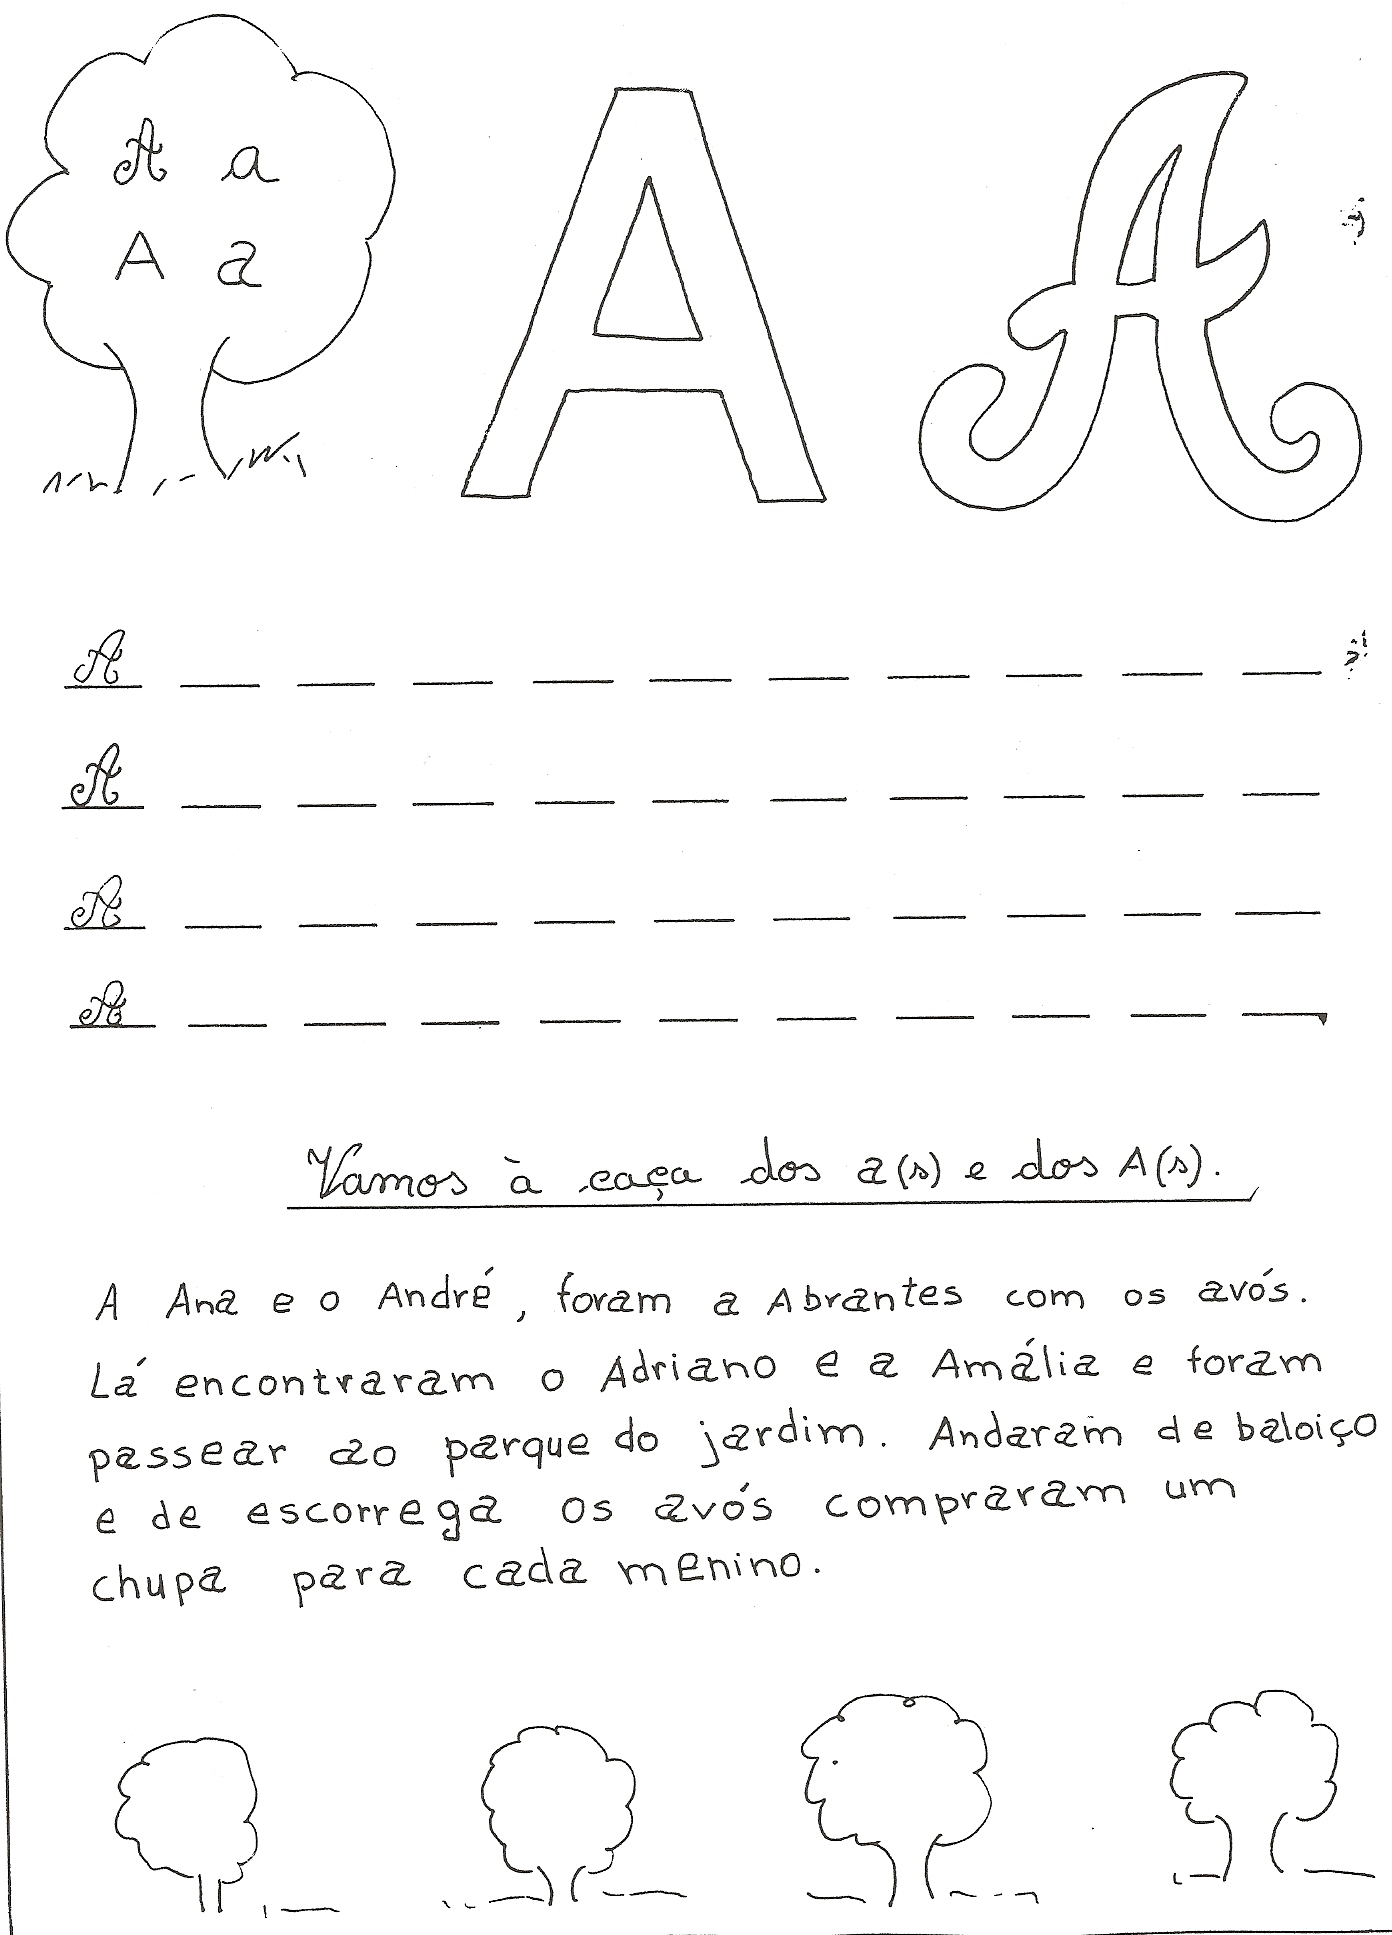 A a
A a
A A
A
A
A
A
Vamos à caça dos a(s) e dos A(s).
A Ana e o André, foram a Abrantes com os avós.
Lá encontraram o Adriano e a Amália e foram
passear ao parque do jardim. Andaram de baloiço
e de escorrega os avós compraram um
chupa para cada menino.